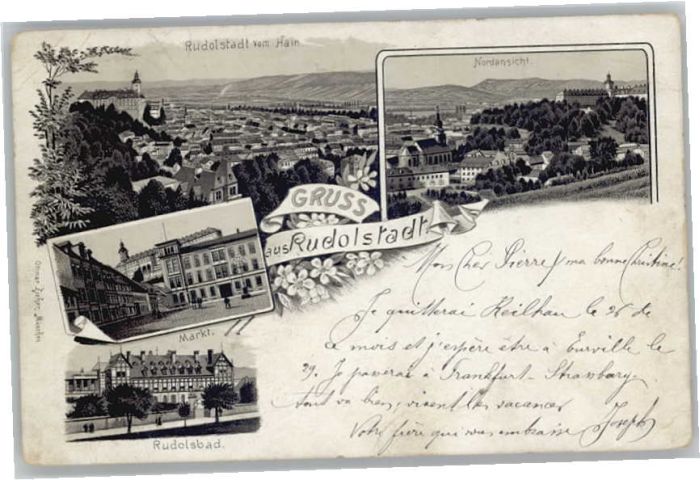 Rudolstadt vom Hain
Nordansicht.
GRUSS
aus Rudolstadt
Markt.
Rudolsbad.
Ottmar Zieher, München
Mon Cher Pierre, ma bonne Christine!
Je quitterai Keilhau le 26 de
ce mois et j'espère être à Eurville le
29. Je passerai à Frankfurt - Strassburg.
Tout va bien, vivent les vacances
Votre frère qui vous embrasse Joseph